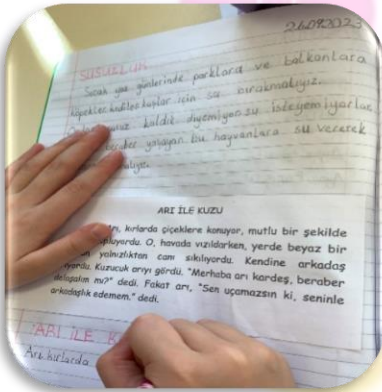 26.09.2023
SUSUZLUK
Sıcak yaz günlerinde parklara ve balkonlara
köpekler, kediler, kuşlar için su bırakmalıyız.
kaldık diyemiyor su isteyemiyorlar
beraber yaşayan bu hayvanlara su vererek
ARI İLE KUZU
kırlarda çiçeklere konuyor, mutlu bir şekilde
O, havada vızıldarken, yerde beyaz bir
yalnızlıktan canı sıkılıyordu. Kendine arkadaş
Kuzucuk arıyı gördü. "Merhaba arı kardeş, beraber
dolaşalım mı?" dedi. Fakat arı, "Sen uçamazsın ki, seninle
arkadaşlık edemem." dedi.
ARI İLE
Arı kırlarda